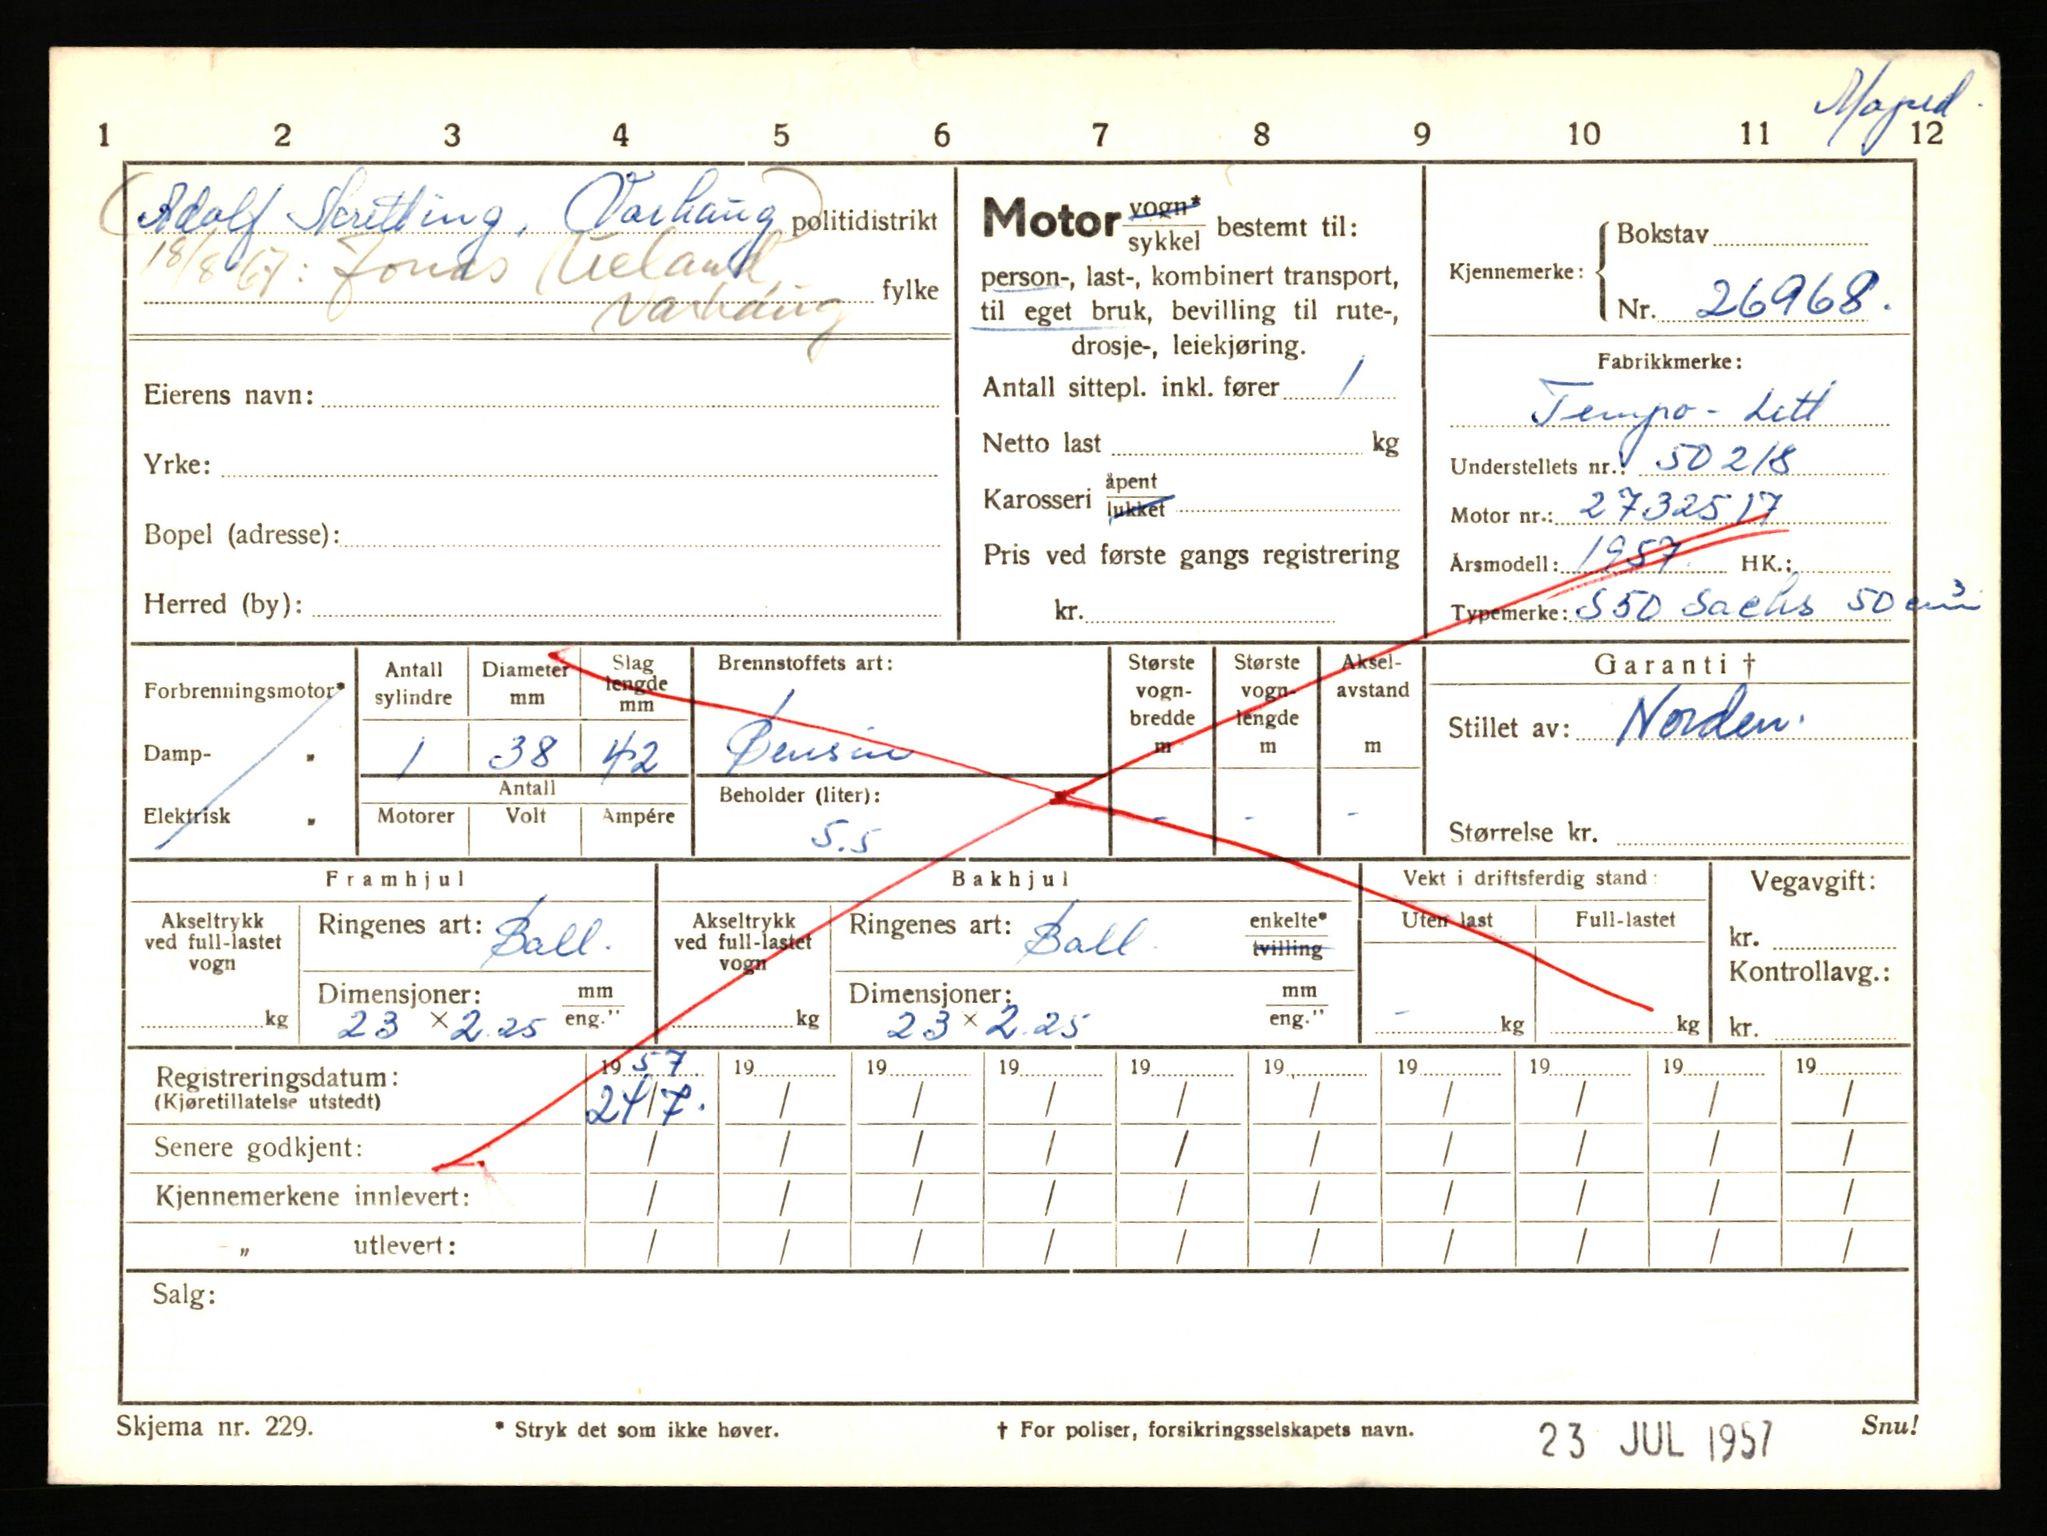 Moped.
1 2 3 4 5 6 7 8 9 10 11 12
(Adolf Skretting, Varhaug) politidistrikt
18/8 67: Jonas
Varhaug fylke
Eierens navn:
Yrke:
Bopel (adresse):
Herred (by):
Motor vogn* / sykkel bestemt til:
person-, last-, kombinert transport,
til eget bruk, bevilling til rute-,
drosje-, leiekjøring.
Antall sittepl. inkl. fører 1
Netto last kg
Karosseri åpent / lukket
Pris ved første gangs registrering
kr.
Kjennemerke: { Bokstav
Nr. 26968.
Fabrikkmerke:
Tempo - Lett
Understellets nr.: 50218
Motor nr.: 2732517
Årsmodell: 1957. HK.:
Typemerke: S50 Sachs 50 cm³
Forbrenningsmotor*
Damp- "
Elektrisk "
Antall sylindre
Diameter mm
Slag lengde mm
1 38 42
Antall
Motorer Volt Ampére
Brennstoffets art:
Bensin
Beholder (liter):
5.5
Største vogn-bredde m
Største vogn-lengde m
Aksel-avstand m
- - -
Garanti †
Stillet av: Norden.
Størrelse kr.
Framhjul
Akseltrykk ved full-lastet vogn
kg
Ringenes art: Ball.
Dimensjoner: mm / eng."
23 × 2.25
Bakhjul
Akseltrykk ved full-lastet vogn
kg
Ringenes art: Ball. enkelte* / tvilling
Dimensjoner: mm / eng."
23 × 2.25
Vekt i driftsferdig stand:
Uten last Full-lastet
- kg kg
Vegavgift:
kr.
Kontrollavg.:
kr.
Registreringsdatum: 1957. 19 19 19 19 19 19 19 19 19
(Kjøretillatelse utstedt) 24/7. / / / / / / / / /
Senere godkjent: / / / / / / / / / /
Kjennemerkene innlevert: / / / / / / / / / /
" utlevert: / / / / / / / / / /
Salg:
Skjema nr. 229. * Stryk det som ikke høver. † For poliser, forsikringsselskapets navn. 23 JUL 1957 Snu!